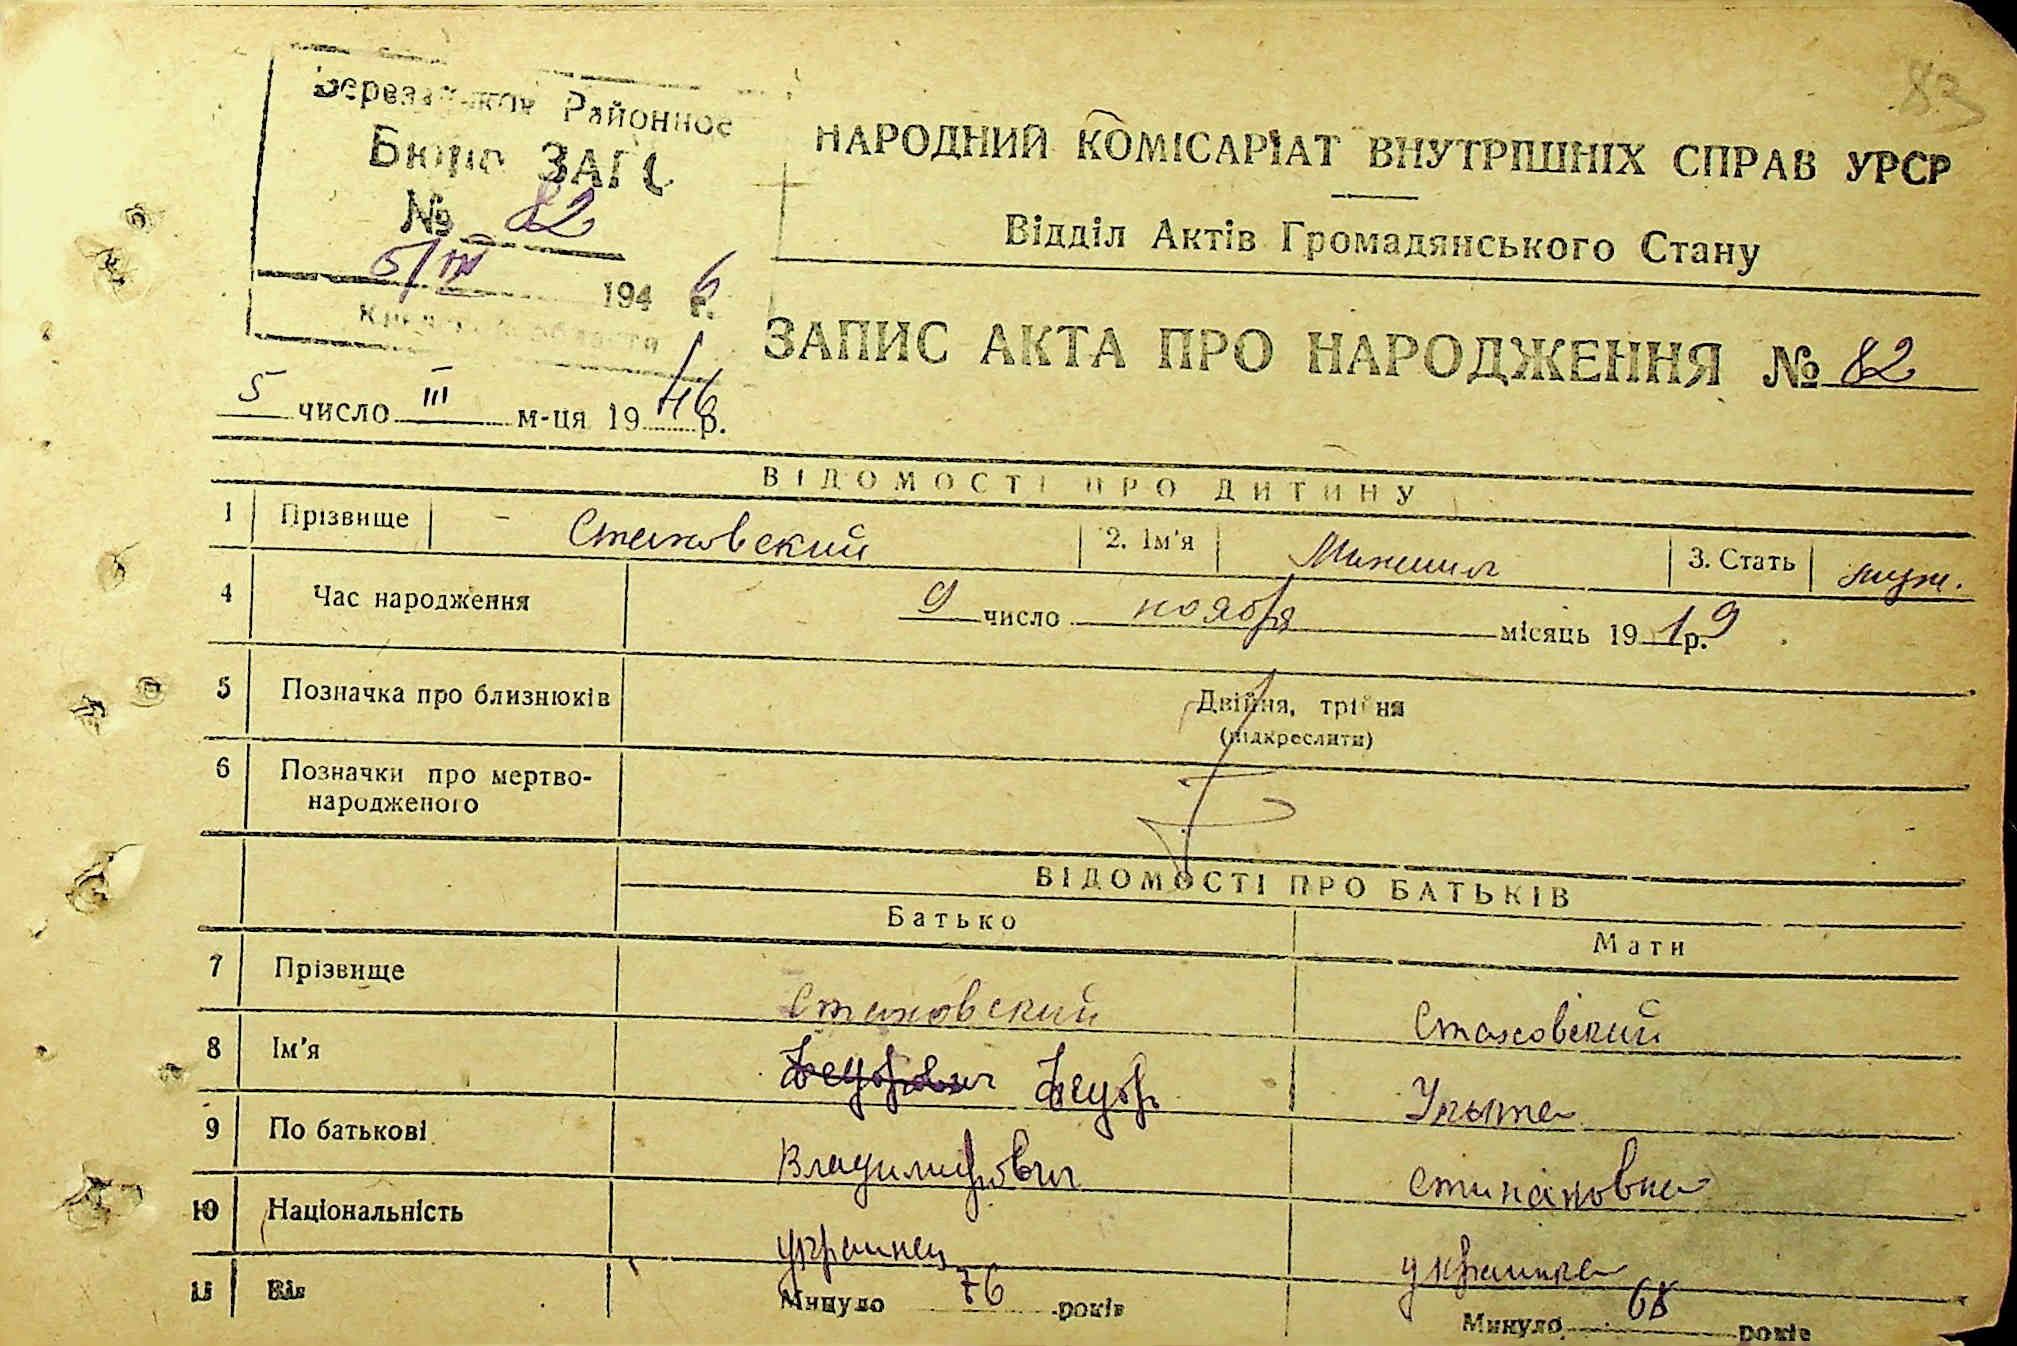 83
Районное
Бюро ЗАГС
№ 82
5/III 1946 г.
области
НАРОДНИЙ КОМІСАРІАТ ВНУТРІШНІХ СПРАВ УРСР
Відділ Актів Громадянського Стану
ЗАПИС АКТА ПРО НАРОДЖЕННЯ № 82
5 число III м-ця 1946 р.
ВІДОМОСТІ ПРО ДИТИНУ
1 Прізвище Стаховский 2. Ім'я Михаил 3. Стать муж.
4 Час народження 9 число ноября місяць 1919 р.
5 Позначка про близнюків Двійня, трійня
(підкреслити)
6 Позначки про мертво-
народженого
ВІДОМОСТІ ПРО БАТЬКІВ
Батько Мати
7 Прізвище Стаховский Стаховский
8 Ім'я Федорович Федор
9 По батькові Владимирович Стипановна
10 Національність украинец украинка
11 Вік Минуло 76 років Минуло 68 років